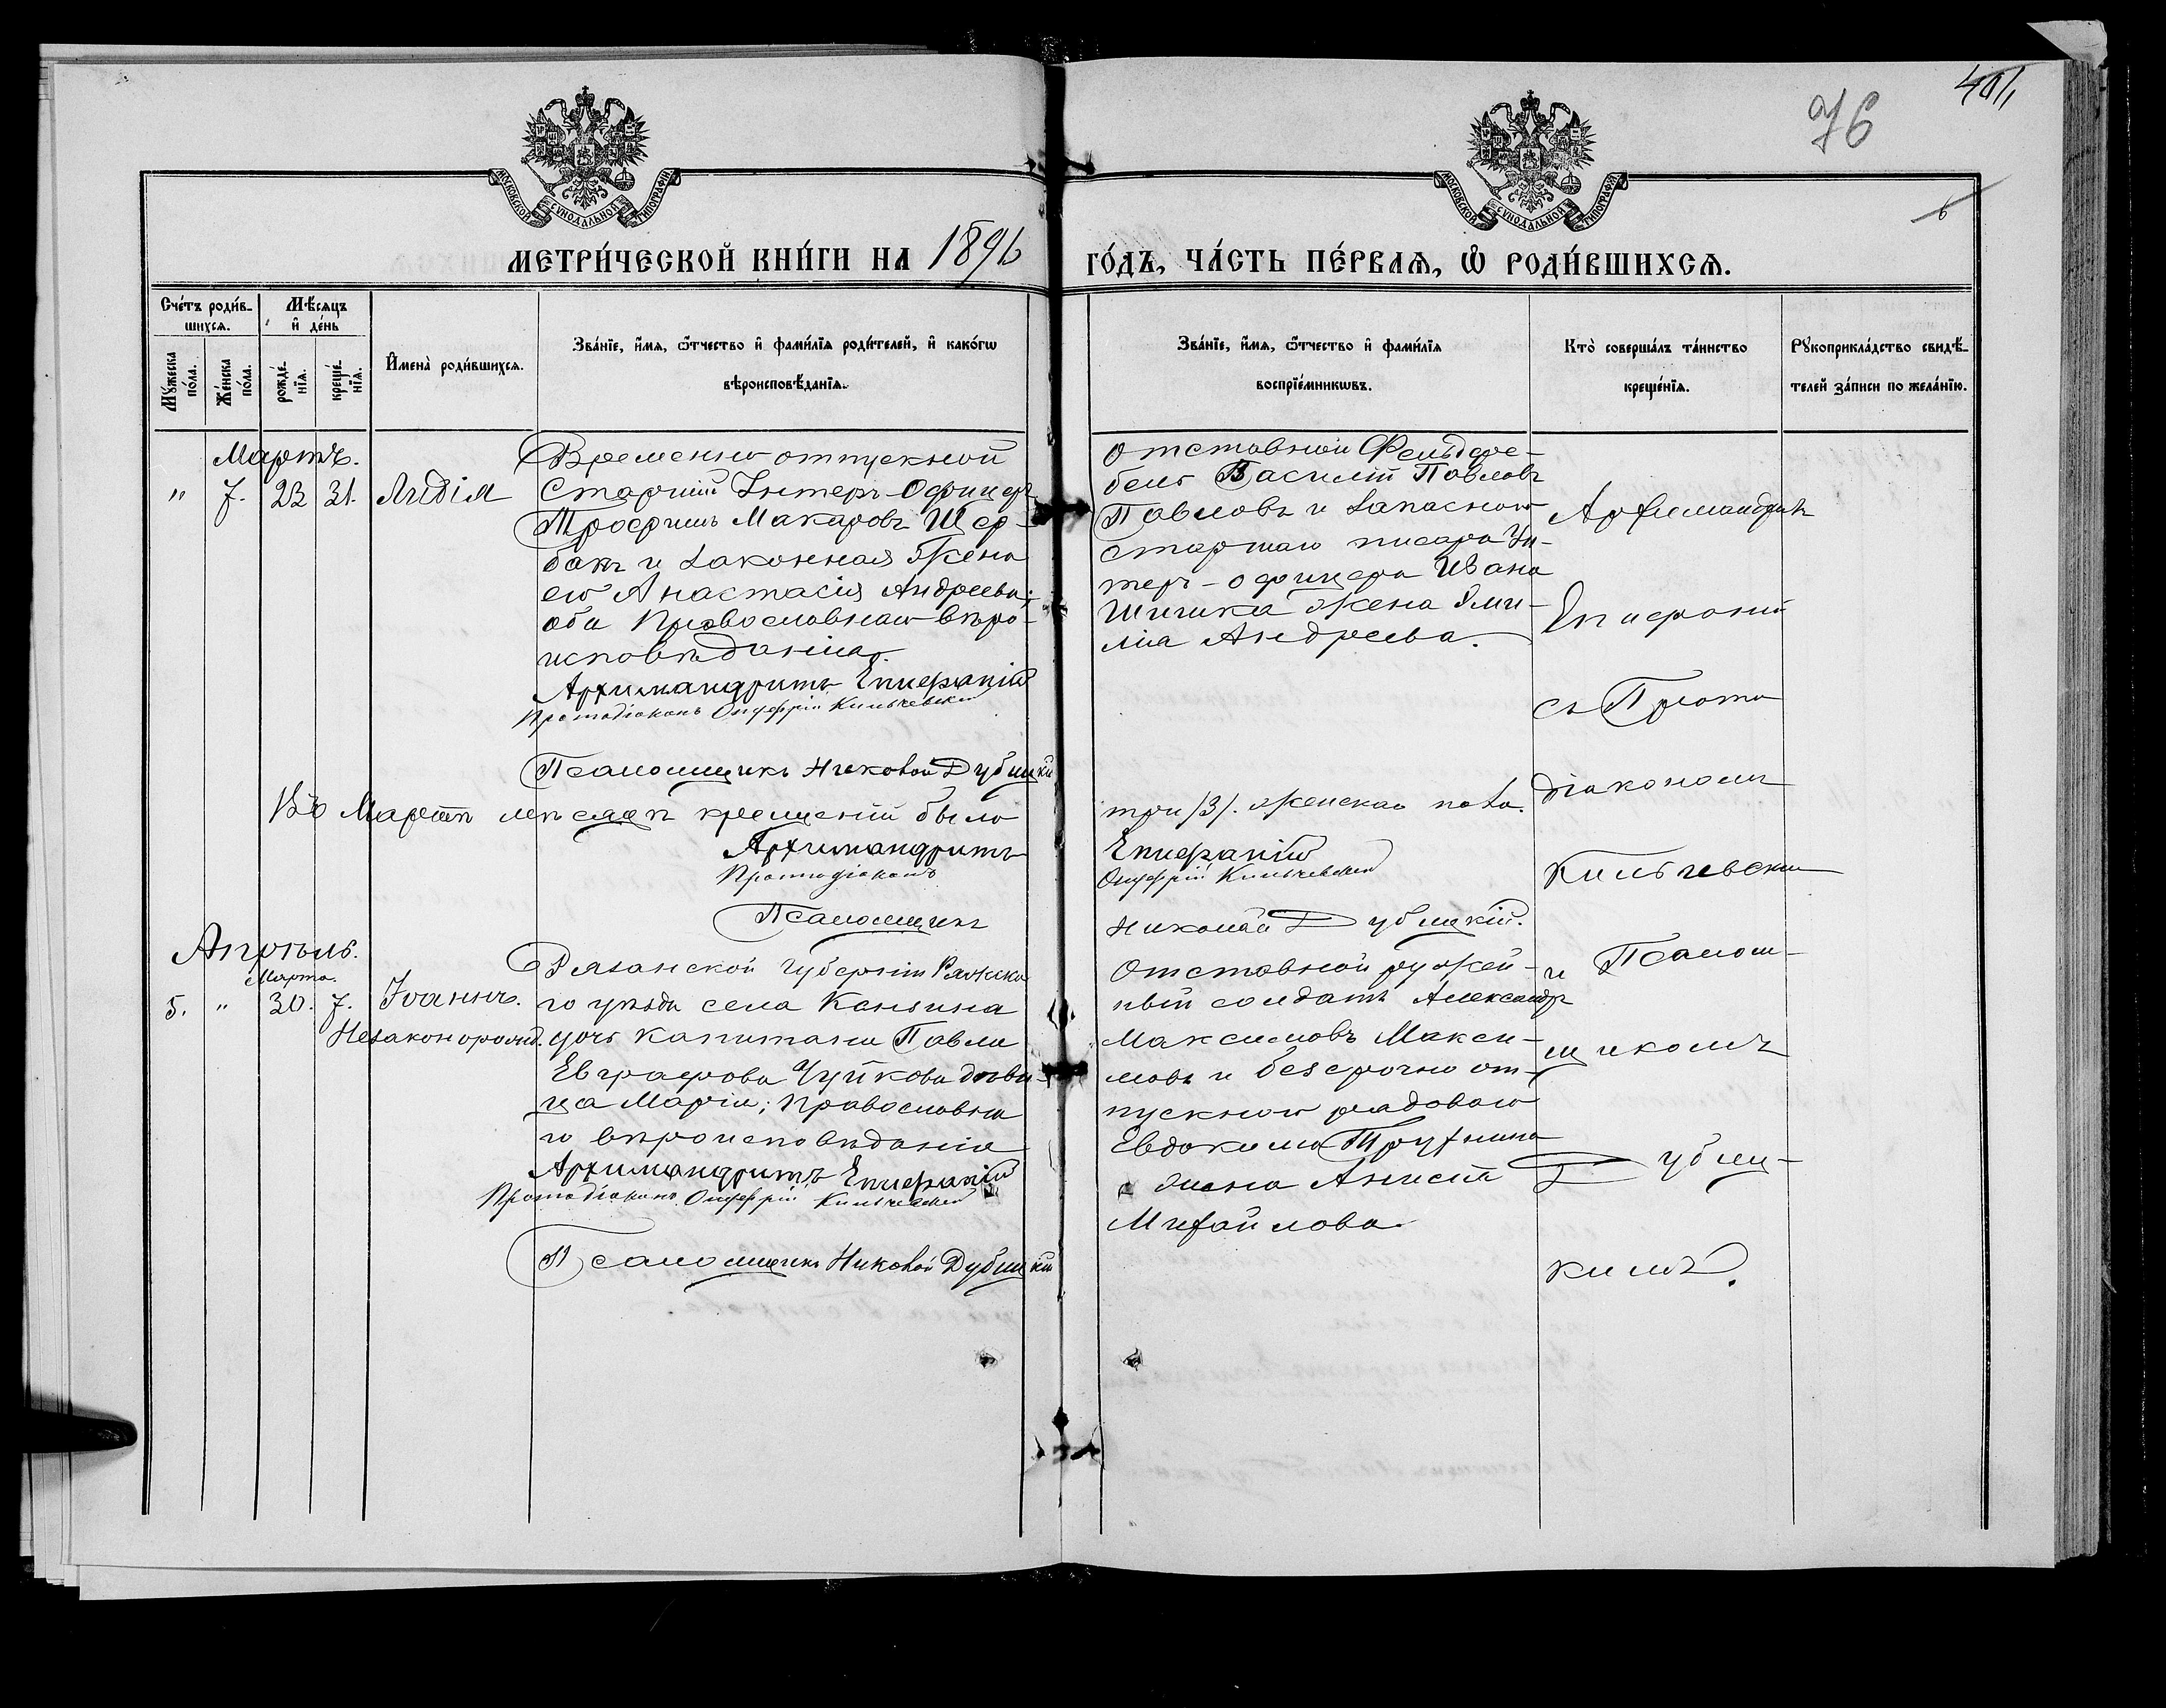 76
401
6
МОСКОВСКОЙ СѴНОДАЛЬНОЙ ТИПОГРАФІИ
МОСКОВСКОЙ СѴНОДАЛЬНОЙ ТИПОГРАФІИ
МЕТРИ́ЧЕСКОЙ КНИ́ГИ НА 1896 ГО́ДЪ, ЧА́СТЬ ПЕ́РВАѦ, Ѽ РОДИ́ВШИХСѦ.
Сче́тъ роди́в-
шихсѧ.
Мꙋ́жеска по́ла.
Же́нска по́ла.
Мѣ́сѧцъ
и҆ де́нь
рожде́-
нїѧ.
креще́-
нїѧ.
И҆мена̀ роди́вшихсѧ.
Зва́нїе, и҆́мѧ, ѻ҆́тчество и҆ фами́лїѧ роди́телей, и҆ како́гѡ
вѣроисповѣ́данїѧ.
Зва́нїе, и҆́мѧ, ѻ҆́тчество и҆ фами́лїѧ
воспрїе́мникѡвъ.
Кто̀ соверша́лъ та́инство
креще́нїѧ.
Рꙋкоприкла́дство свидѣ́-
телей за́писи по жела́нїю.
Мартъ.
" 7. 23 31. Лидія
Временно отпускной
Старшій Унтеръ-Офицеръ
Трофимъ Макаровъ Щер-
бакъ и законная жена
его Анастасія Андреева;
оба Православнаго вѣро-
исповѣданія.
Архимандритъ Епифаній
Протодіаконъ Онуфрій Кильчевскій
Псаломщикъ Николай Дубицкій
Отставной Фельдфе-
бель Василій Павловъ
Павловъ и запаснаго
старшаго писаря Ун-
теръ-офицера Ивана
Шишка жена Эми-
лія Андреева.
Архимандритъ
Епифаній
съ Прото
діакономъ
Кильчевски
и Псалом-
щикомъ
Дубиц-
кимъ.
Въ Мартѣ мѣсяцѣ крещеній было три /3/. женскаго пола.
Архимандритъ Епифаній
Протодіаконъ Онуфрій Кильчевскій
Псаломщикъ Николай Дубицкій.
Апрѣль.
Марта.
5. " 30. 7. Іоаннъ.
Незаконорожд.
Рязанской губерніи Ряжска
го уѣзда села Канина
дочь капитана Павла
Евграфова Чуйкова дѣви-
ца Марія; православна
го вѣроисповѣданія
Архимандритъ Епифаній
Протодіаконъ Онуфрій Кильчевскій
Псаломщикъ Николай Дубицкій
Отставной ружей-
ный солдатъ Александръ
Максимовъ Макси-
мовъ и безсрочно от-
пускного рядоваго
Евдокима Трухнина
жена Анисія
Михайлова.